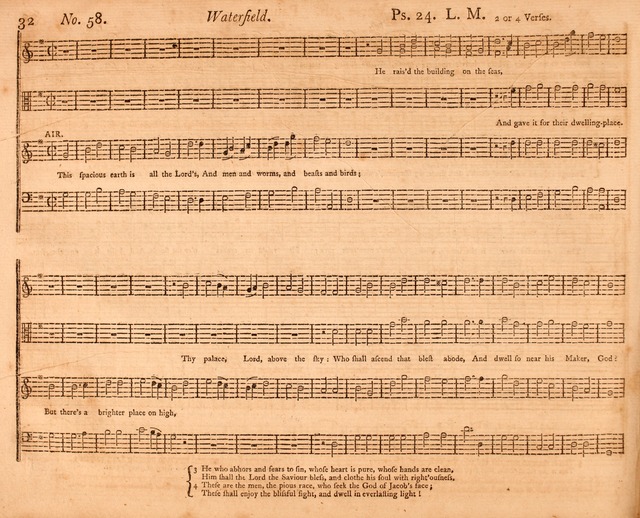 32 No. 58. Waterfield. Ps. 24. L. M. 2 or 4 Verſes.
He rais'd the building on the ſeas,
And gave it for their dwelling-place.
AIR.
This ſpacious earth is all the Lord's, And men and worms, and beaſts and birds;
Thy palace, Lord, above the ſky: Who ſhall aſcend that bleſt abode, And dwell ſo near his Maker, God?
But there's a brighter place on high,
3 He who abhors and fears to ſin, whoſe heart is pure, whoſe hands are clean,
Him ſhall the Lord the Saviour bleſs, and clothe his ſoul with right'ouſneſs.
4 Theſe are the men, the pious race, who ſeek the God of Jacob's face;
Theſe ſhall enjoy the bliſsful ſight, and dwell in everlaſting light!